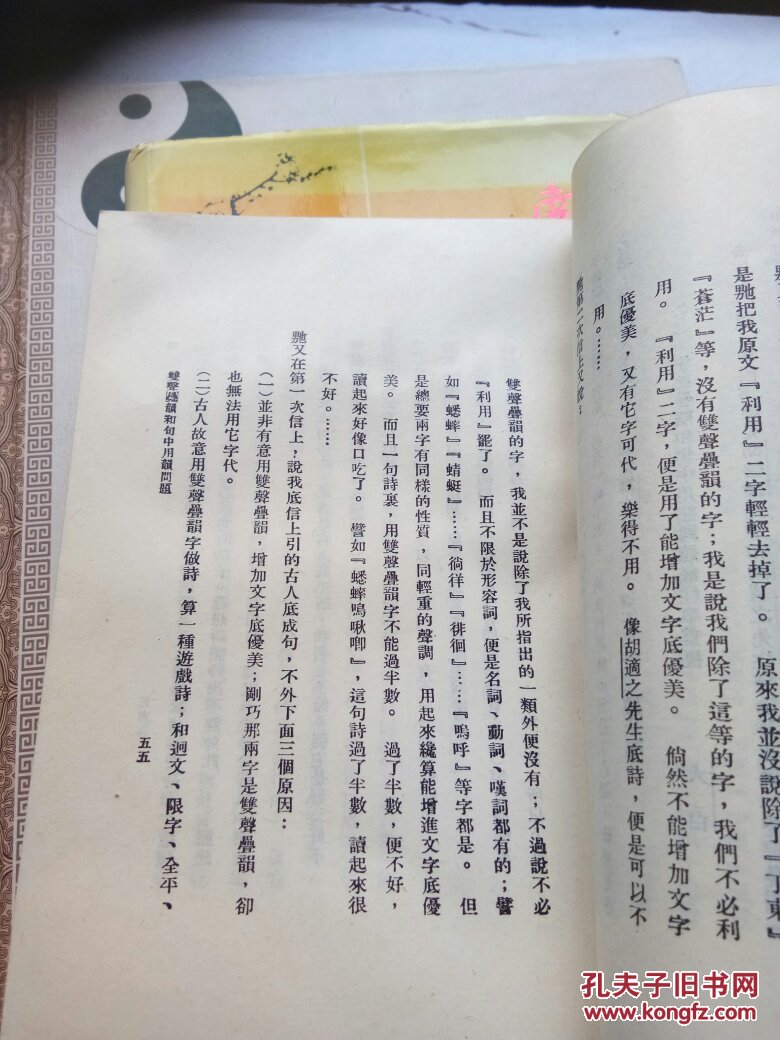 是馳把我原文『利用』二字輕輕去掉了。　原來我並沒說除了『丁東』
『蒼茫』等，沒有雙聲疊韻的字；我是說我們除了這等的字，我們不必利
用。　『利用』二字，便是用了能增加文字底優美。　倘然不能增加文字
底優美，又有它字可代，樂得不用。　像胡適之先生底詩，便是可以不
用。……
雙聲疊韻的字，我並不是說除了我所指出的一類外便沒有；不過說不必
『利用』罷了。　而且不限於形容詞，便是名詞、動詞、嘆詞都有的；譬
如『蟋蟀』『蜻蜓』……『徜徉』『徘徊』……『嗚呼』等字都是。　但
是總要兩字有同樣的性質，同輕重的聲調，用起來纔算能增進文字底優
美。　而且一句詩裏，用雙聲疊韻字不能過半數。　過了半數，便不好，
讀起來好像口吃了。　譬如『蟋蟀鳴啾唧』，這句詩過了半數，讀起來很
不好。……
馳又在第一次信上，說我底信上引的古人底成句，不外下面三個原因：
（一）並非有意用雙聲疊韻，增加文字底優美；剛巧那兩字是雙聲疊韻，卻
也無法用它字代。
（二）古人故意用雙聲疊韻字做詩，算一種遊戲詩；和迴文、限字、全平、
雙聲疊韻和句中用韻問題
五五
孔夫子旧书网
www.kongfz.com